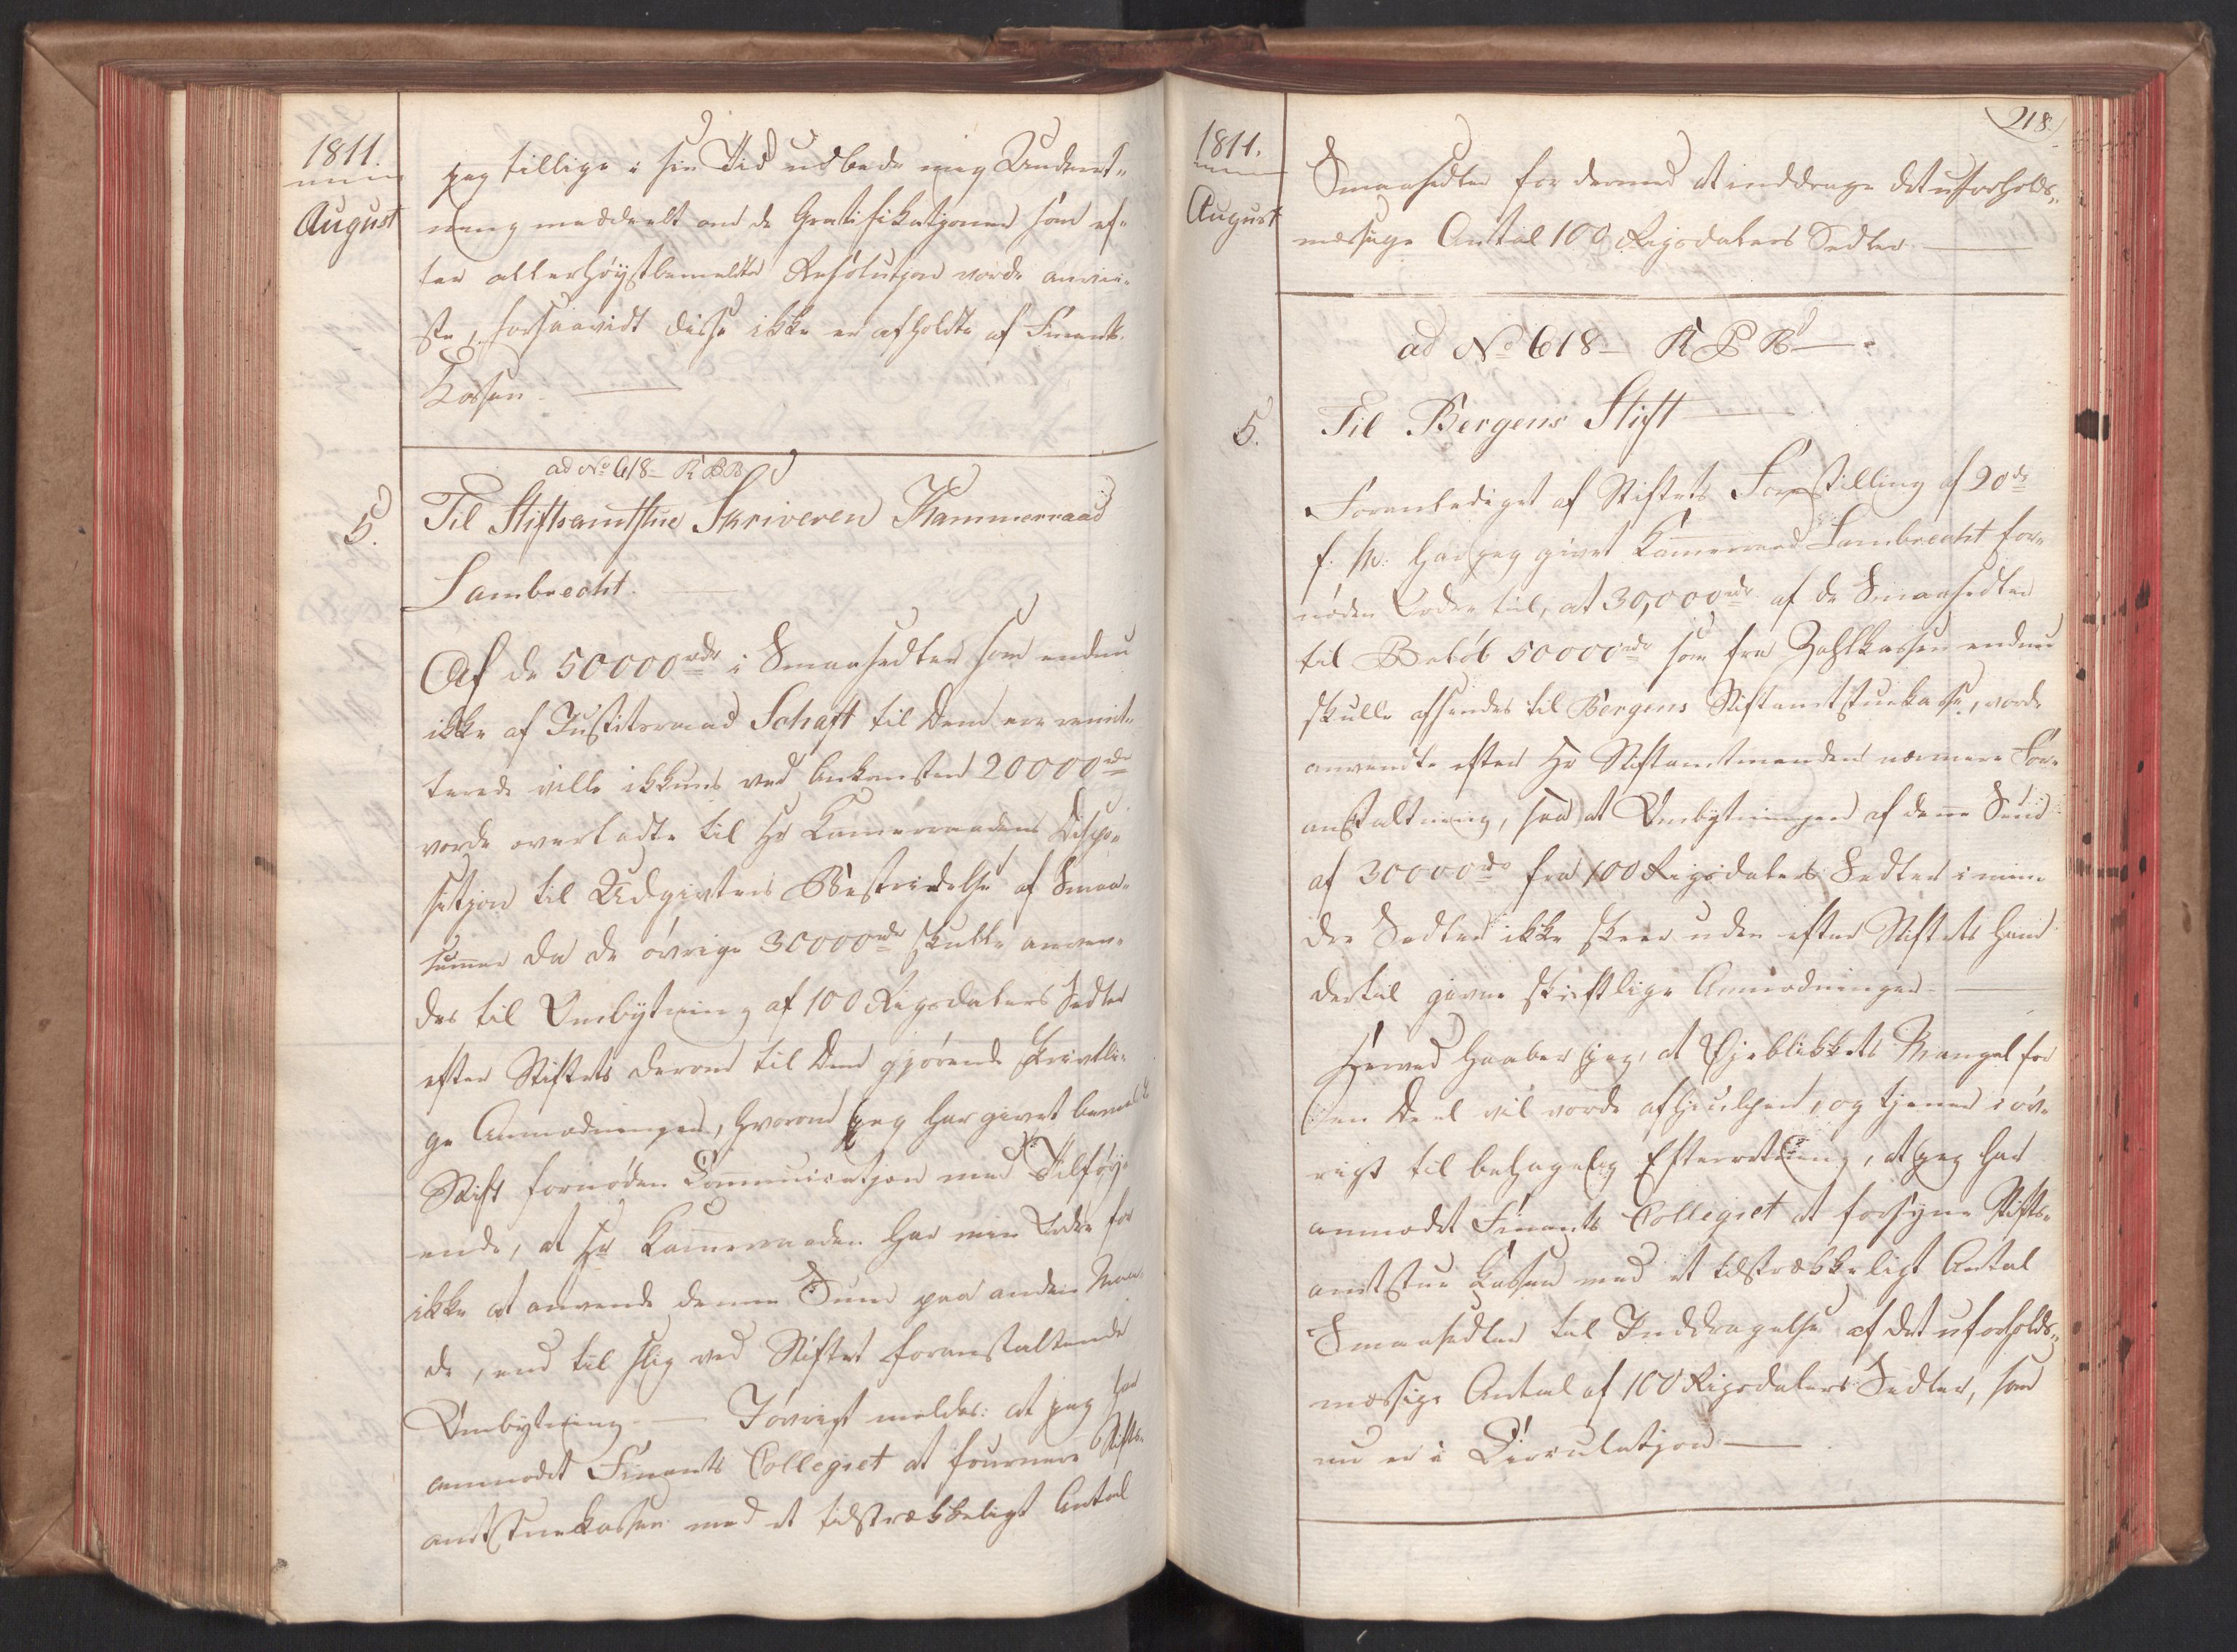 1811.
August
jeg tillige i sin Tid udbede mig Underret-
ning meddeelt om de Gratifikationer som ef-
ter allerhøystbemeldte Resolution vorde anvii-
ste, forsaavidt disse ikke er afholdte af Finants-
Cassen.
ad No 618- R B B
5.
Til Stiftsamtstue Skriveren Kammerraad
Lambrecht.
Af de 50000 rdr i Smaasedler som endnu
ikke af Justitsraad Schaft til Dem ere remit-
terede ville ikkuns ved Ankomsten 20000 rdr
vorde overladte til Hr Kammerraadens Dispo-
sition til Udgivters Bestridelse af Smaa-
summer da de øvrige 30000 rdr skulle anven-
des til Ombytning af 100 Rigsdalers Sedler
efter Stiftets derom til Dem gjørende skrivtli-
ge Anmodninger, hvorom jeg har givet bemeldte
Stift fornøden Communication med Tilføy-
ende, at Hr Kammerraaden har min Ordre for
ikke at anvende denne Sum paa anden Maa-
de, end til slig ved Stiftet foranstaltende
Ombytning. Iøvrigt meldes: at jeg har
anmodet Finants Collegiet at fournere Stifts-
amtstuekassen med et tilstrækkeligt Antal
218.
1811.
August
Smaasedler for dermed at inddrage det uforholds-
mæssige Antal 100 Rigsdalers Sedler
ad No 618- R B B
5.
Til Bergens Stift
Foranlediget af Stiftets Forestilling af 20de
f. M. har jeg givet Kammerraad Lambrecht for-
nøden Ordre til, at 30,000 rdr af de Smaasedler
til Beløb 50000 rdr som fra Zahlkassen endnu
skulle afsendes til Bergens Stiftamtstuekasse, vorde
anvendte efter Hr Stiftamtmandens nærmere For-
anstaltning, saa at Ombytningen af denne Sum
af 30000 rdr fra 100 Rigsdalers Sedler i min-
dre Sedler ikke skeer uden efter Stiftets ham
dertil givne skriftlige Anmodninger.
Herved haaber jeg, at Øjeblikkets Mangel for
en Deel vil vorde afhjulpen, og tjener i øv-
rigt til behagelig Efterretning, at jeg har
anmodet Finants Collegiet at forsyne Stifts-
amtstue Kassen med et tilstrækkeligt Antal
Smaasedler til Inddragelse af det uforholds-
mæssige Antal af 100 Rigsdalers Sedler, som
nu er i Circulation